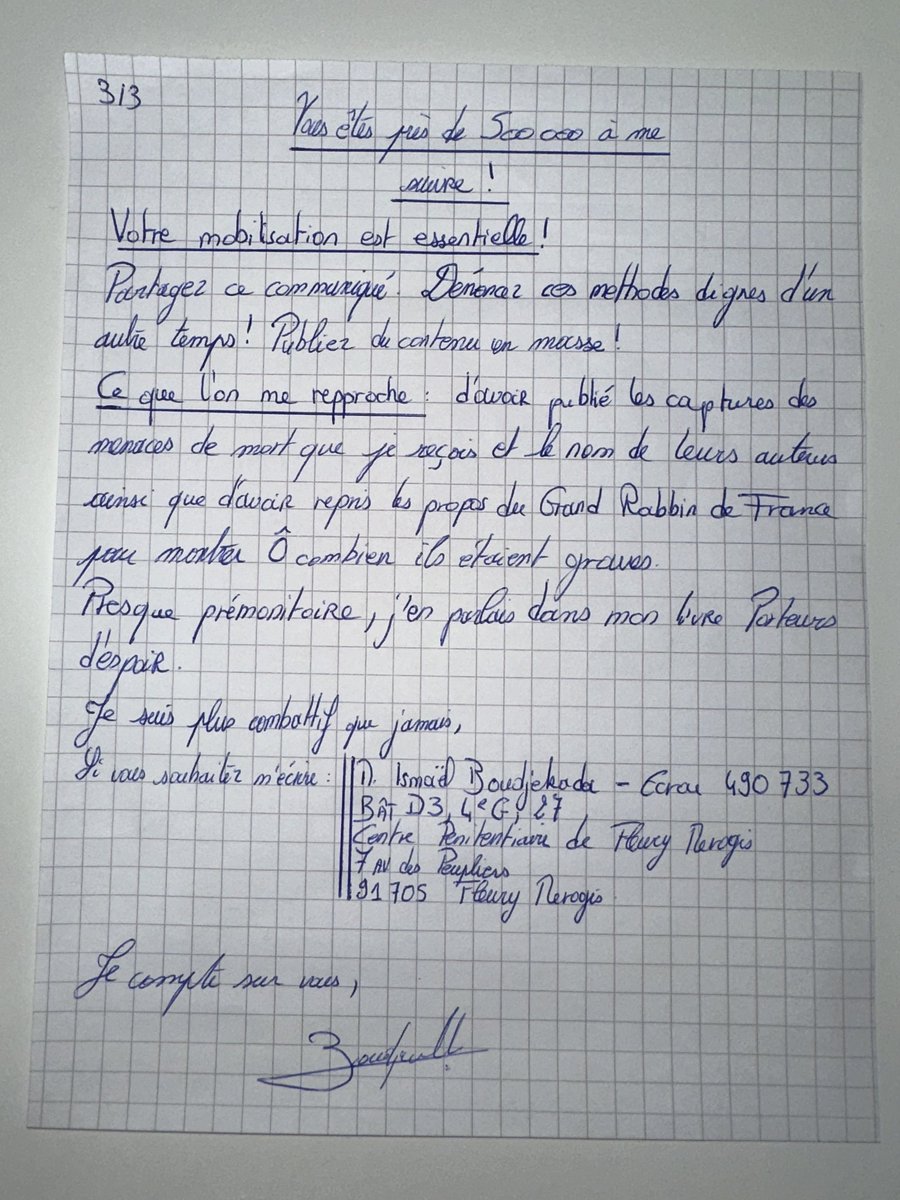 3/3
Vous êtes près de 500 000 à me
suivre !
Votre mobilisation est essentielle !
Partagez ce communiqué. Dénoncez ces methodes dignes d'un
autre temps ! Publiez du contenu en masse !
Ce que l'on me repproche : d'avoir publié les captures des
menaces de mort que je reçois et le nom de leurs auteurs
ainsi que d'avoir repris les propos du Grand Rabbin de France
pour montrer Ô combien ils étaient graves.
Presque prémonitoire, j'en parlais dans mon livre Porteurs
d'espoir.
Je suis plus combattif que jamais,
Si vous souhaitez m'écrire : M. Ismaïl Boudjekada - Ecrou 490 733
BÂT D3, 4e G, 27
Centre Penitentiaire de Fleury Merogis
7 AV des Peupliers
91705 Fleury Merogis
Je compte sur vous,